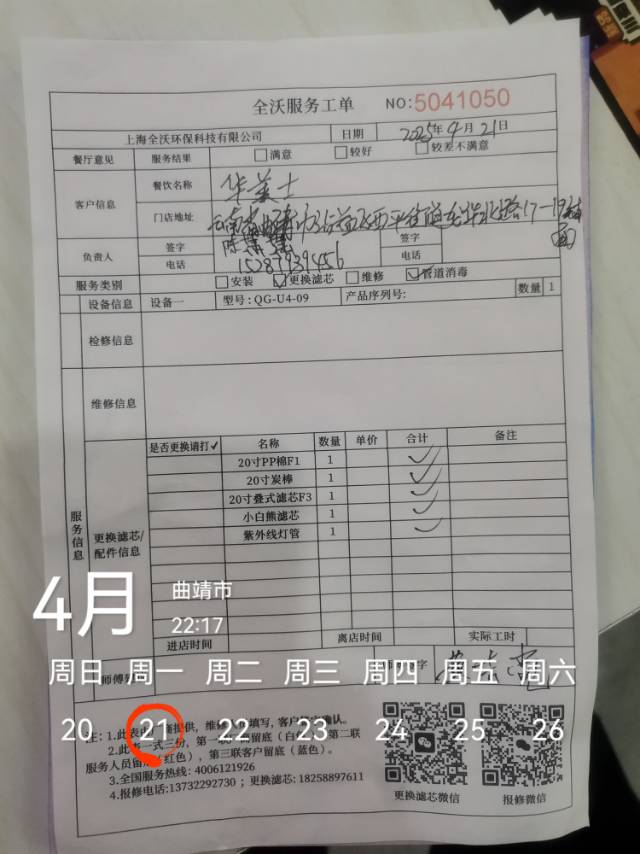 全沃服务工单 NO:5041050
上海全沃环保科技有限公司 日期 2025年4月21日
餐厅意见 服务结果 □满意 □较好 □较差不满意
客户信息 餐饮名称 华莱士
门店地址 云南省曲靖市沾益区西平街道龙华北路17-19
负责人 签字 签字
电话 15287939456 电话
服务类别 □安装 ☑更换滤芯 □维修 ☑管道消毒
设备信息 设备一 型号:QG-U4-09 产品序列号: 数量 1
检修信息
维修信息
服务信息
更换滤芯/配件信息
是否更换请打✓ 名称 数量 单价 合计 备注
20寸PP棉F1 1 ✓
20寸炭棒 1 ✓
20寸叠式滤芯F3 1 ✓
小白熊滤芯 1 ✓
紫外线灯管 1 ✓
进店时间 离店时间 实际工时
4月 曲靖市
22:17
周日 周一 周二 周三 周四 周五 周六
20 21 22 23 24 25 26
师傅 字
注:1.此表由 商提供,维修 填写,客户 确认。
2.此 一式三份,第一联 留底(白 第二联
服务人员留 红色),第三联客户留底(蓝色)。
3.全国服务热线:4006121926
4.报修电话:13732292730;更换滤芯:18258897611
更换滤芯微信 报修微信